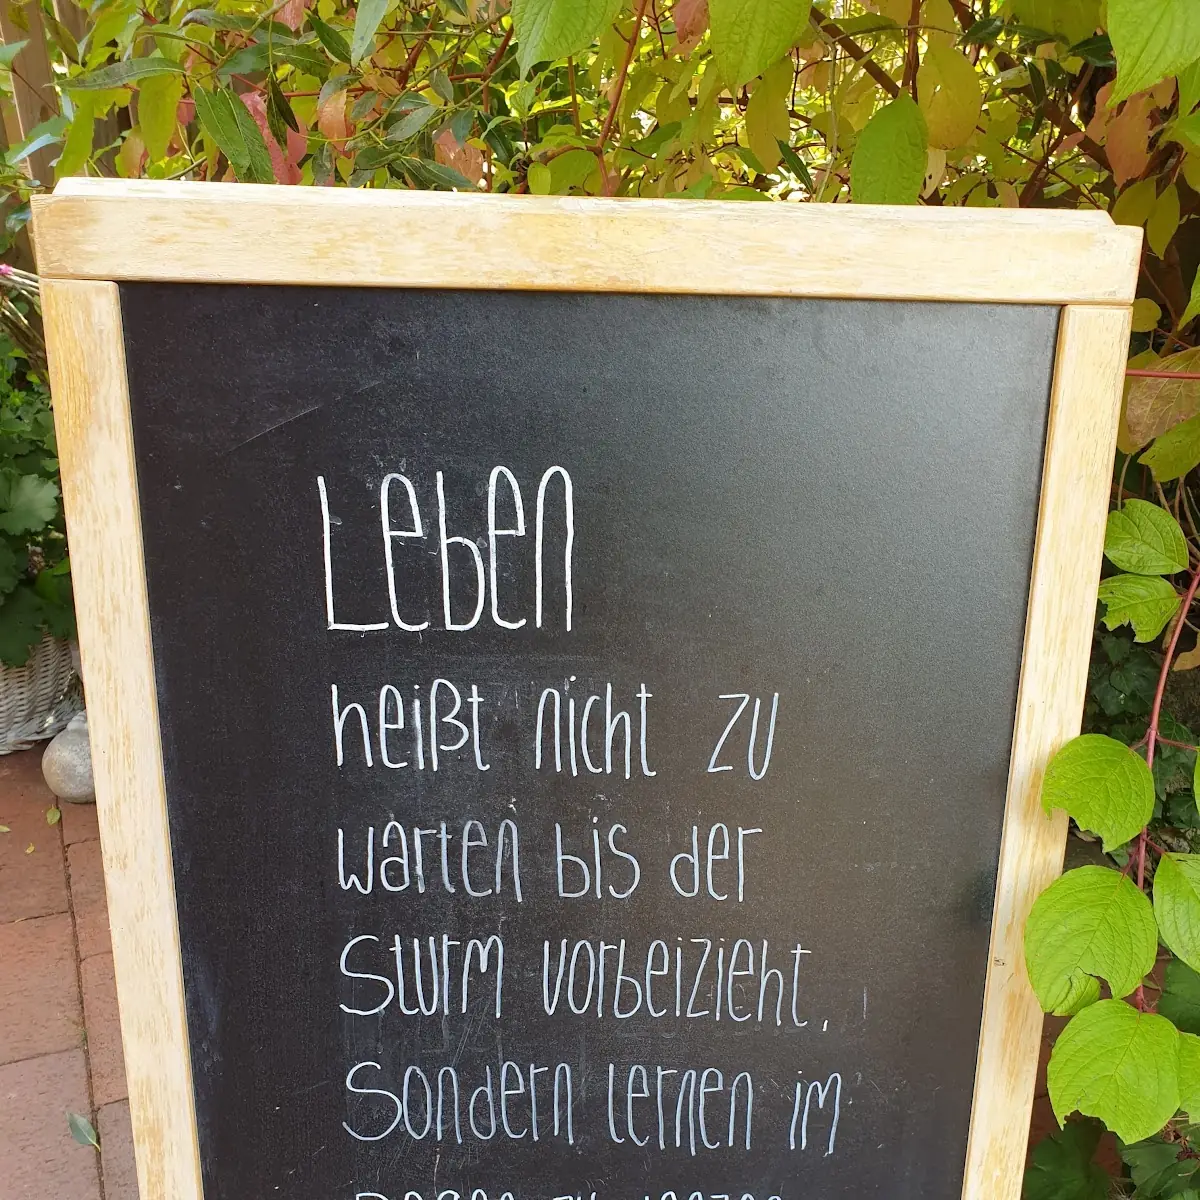 Leben
heißt nicht zu
warten bis der
Sturm vorbeizieht,
Sondern lernen im